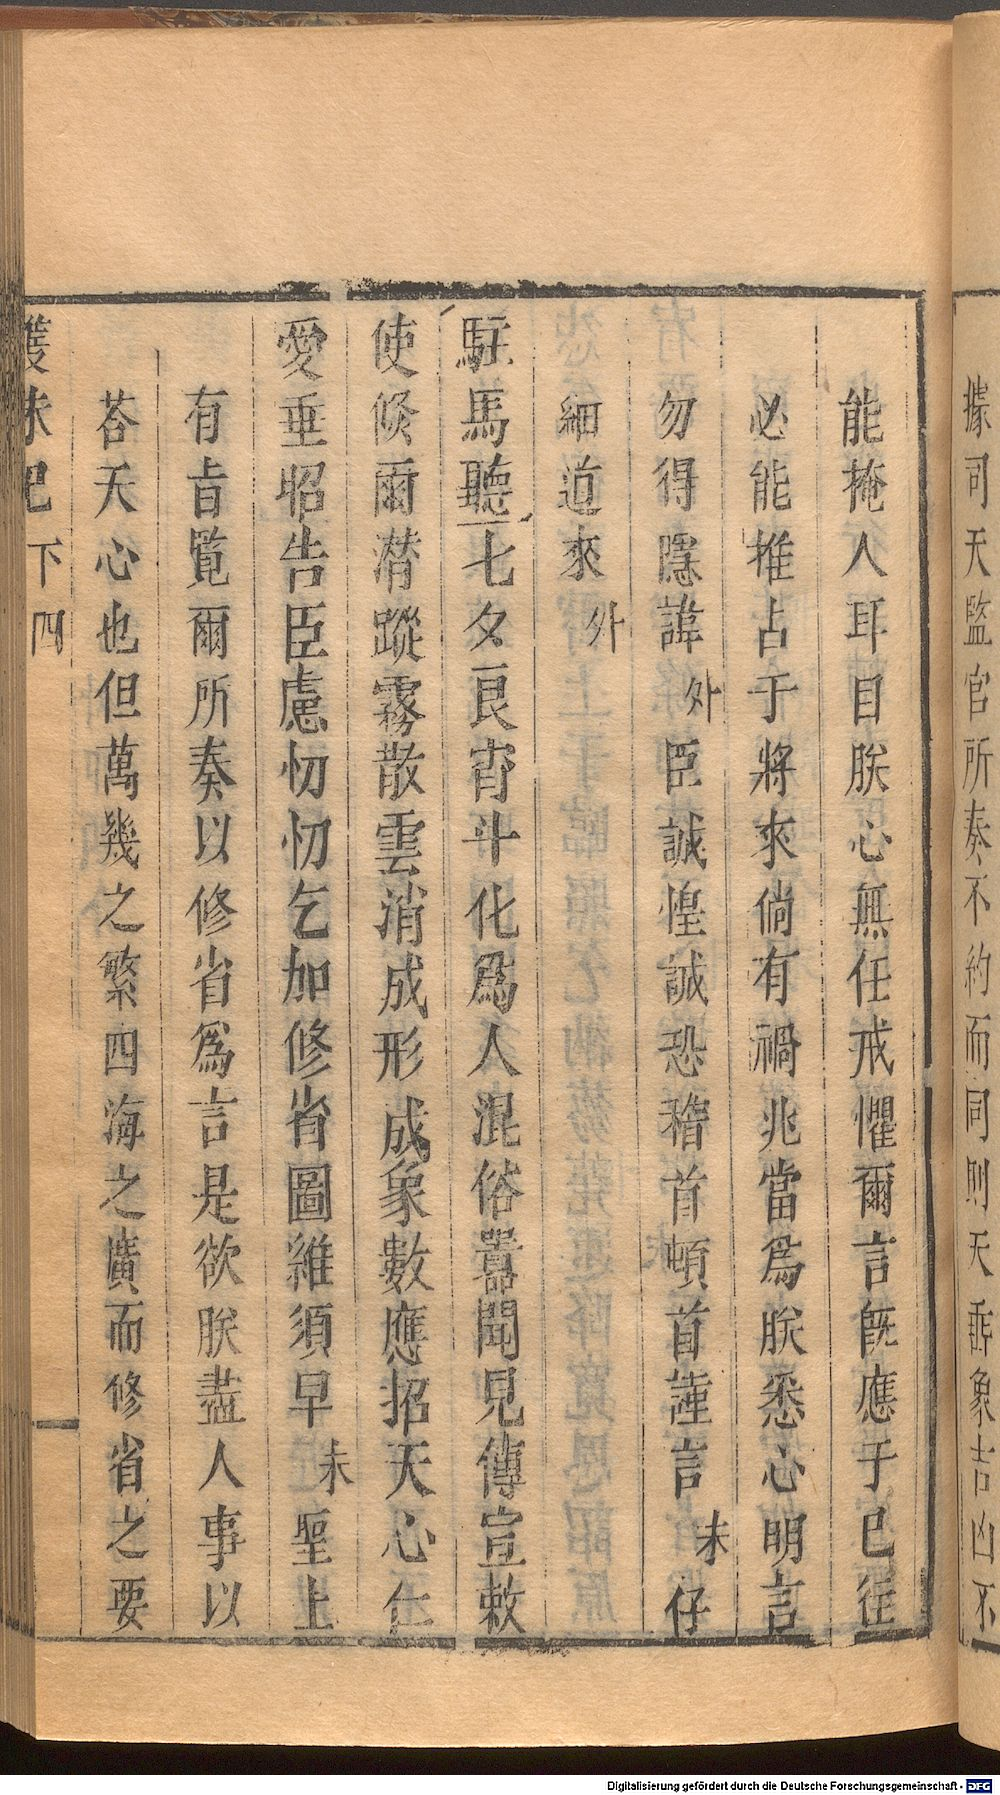 據司天監官所奏不約而同則天垂象吉凶不
能掩人耳目朕心無任戒懼爾言旣應于已徃
必能推占于將來倘有禍兆當爲朕悉心明言
勿得隱諱外臣誠惶誠恐稽首頓首謹言末仔
細道來外
駐馬聽七夕良宵斗化爲人混俗囂聞見傳宣敕
使倐爾潜蹤霧散雲消成形成象數應招天心仁
愛垂昭告臣慮忉忉乞加修省圖維須早末聖上
有㫖覧爾所奏以修省爲言是欲朕盡人事以
荅天心也但萬幾之繁四海之廣而修省之要
下 四
Digitalisierung gefördert durch die Deutsche Forschungsgemeinschaft - DFG